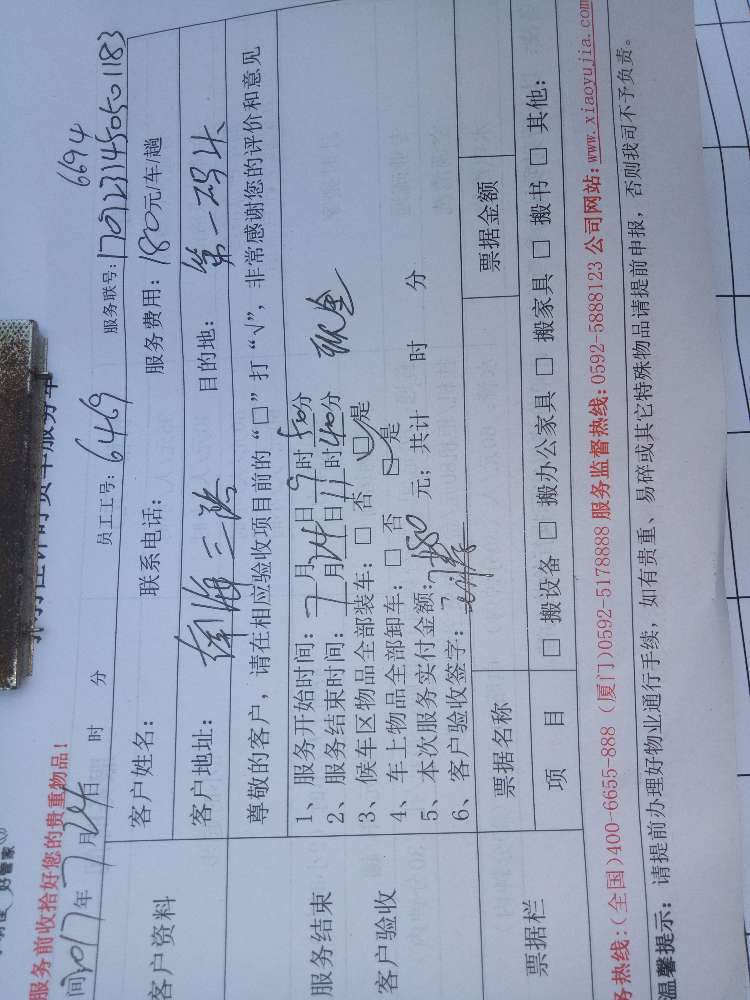 好管家
服务单
服务前收拾好您的贵重物品!
间2017年7月24日 时 分 员工工号: 6469 服务联号: 1707231450501183
6694
客户资料
客户姓名: 联系电话: 服务费用: 180元/车/趟
客户地址: 目的地: 第一码头
尊敬的客户,请在相应验收项目前的“□”打“√”,非常感谢您的评价和意见
服务结束
客户验收
1、服务开始时间: 7月24日9时50分
2、服务结束时间: 7月24日11时40分
3、候车区物品全部装车: □ 否 □ 是
4、车上物品全部卸车: □ 否 □ 是
5、本次服务实付金额: 180 元; 共计 时 分
6、客户验收签字:
票据栏
票据名称 票据金额
项 目 □ 搬设备 □ 搬办公家具 □ 搬家具 □ 搬书 □ 其他:
务热线:(全国)400-6655-888 (厦门)0592-5178888 服务监督热线:0592-5888123 公司网站:www.xiaoyujia.com
温馨提示: 请提前办理好物业通行手续,如有贵重、易碎或其它特殊物品请提前申报,否则我司不予负责。